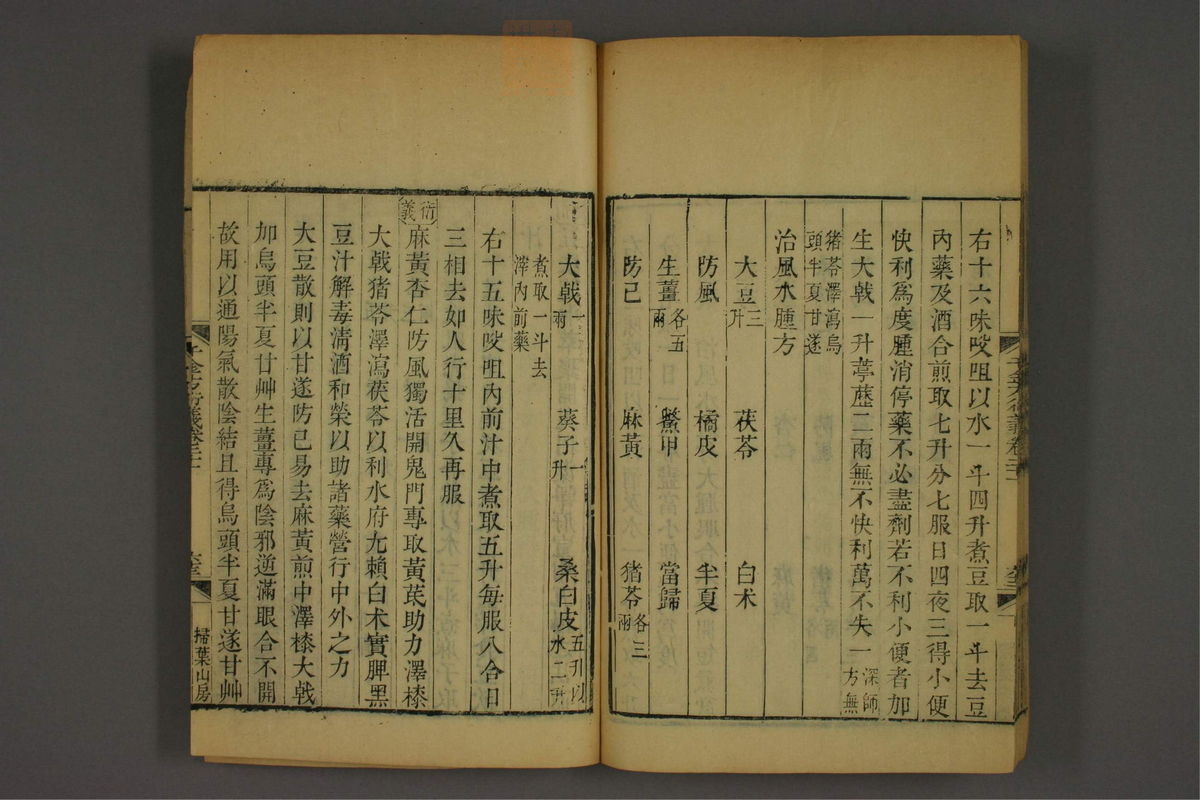 右十六味㕮咀以水一斗四升煮豆取一斗去豆
內藥及酒合煎取七升分七服日四夜三得小便
快利爲度腫消停藥不必盡劑若不利小便者加
生大戟一升葶藶二兩無不快利萬不失一深師方無
猪苓澤瀉烏頭半夏甘遂
治風水腫方
大豆三升 茯苓 白术
防風 橘皮 半夏
生薑各五兩 鱉甲 當歸
防己 麻黃 猪苓各三兩
大戟一兩 葵子一升 桑白皮五升以水二升
煮取一斗去滓內前藥
右十五味㕮咀內前汁中煮取五升每服八合日
三相去如人行十里久再服
衍義 麻黃杏仁防風獨活開鬼門專取黃芪助力澤㯃
大戟猪苓澤瀉茯苓以利水府尢賴白术實脾黑
豆汁解毒淸酒和榮以助諸藥營行中外之力
大豆散則以甘遂防己易去麻黃煎中澤㯃大戟
加烏頭半夏甘艸生薑專爲陰邪逆滿眼合不開
故用以通陽氣散陰結且得烏頭半夏甘遂甘艸
千金方衍義卷二十一
掃葉山房